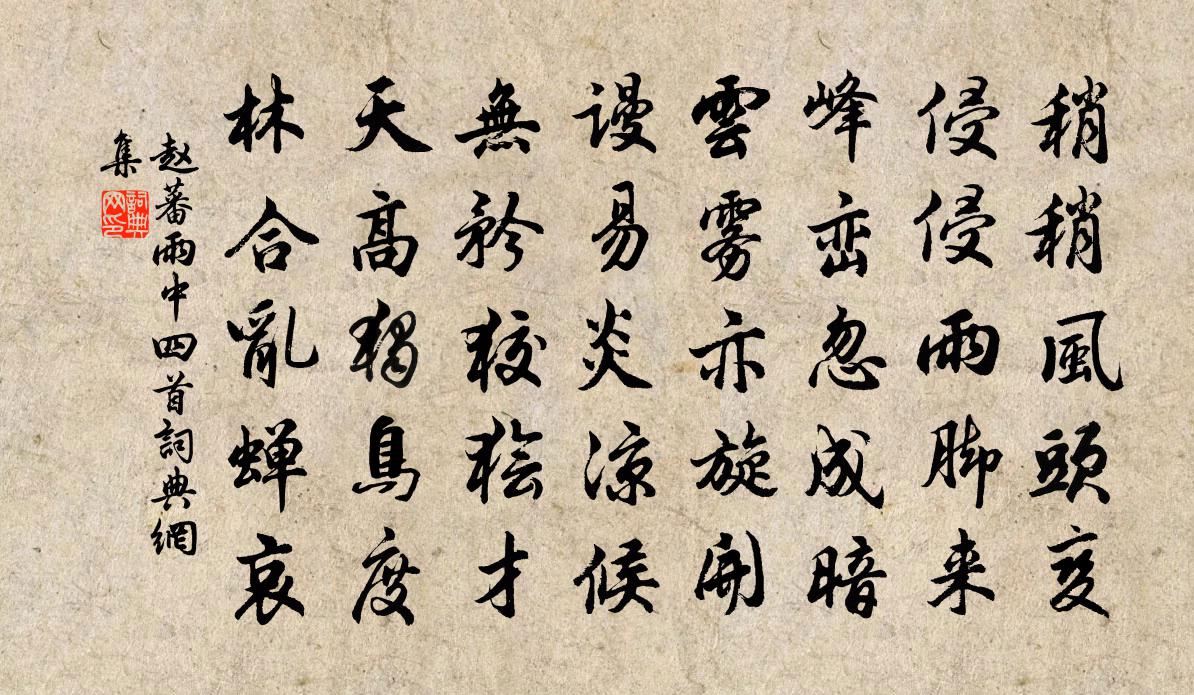 稍稍風頭变
侵侵雨脚来
峰峦忽成暗
雲雾亦旋開
謾易炎涼候
無矜狡獪才
天高獨鳥度
林合亂蝉哀
赵蕃雨中四首詞典網
集
詞典
网印